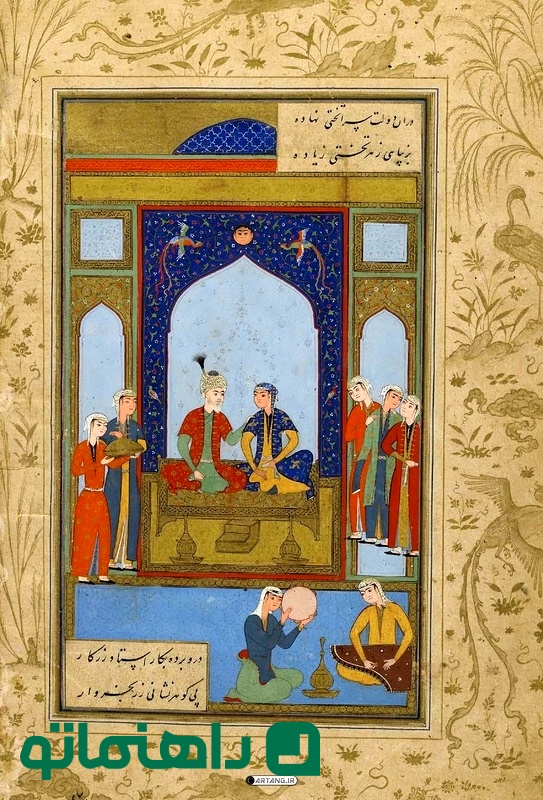 دران دولت سرا تختی نهاده
بزیبای ز هر تختی زیاده
درو برده بکار استاد زرکار
پی گوهر نشانی زر بخروار
راهنماتو
ARTANG.IR